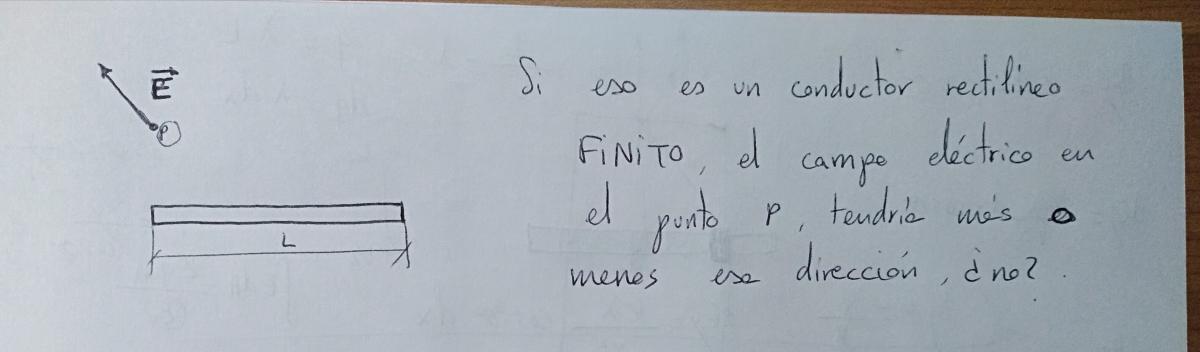 E
P
L
Si eso es un conductor rectilíneo
FINITO, el campo eléctrico en
el punto P, tendría más o
menos esa dirección, ¿no?.